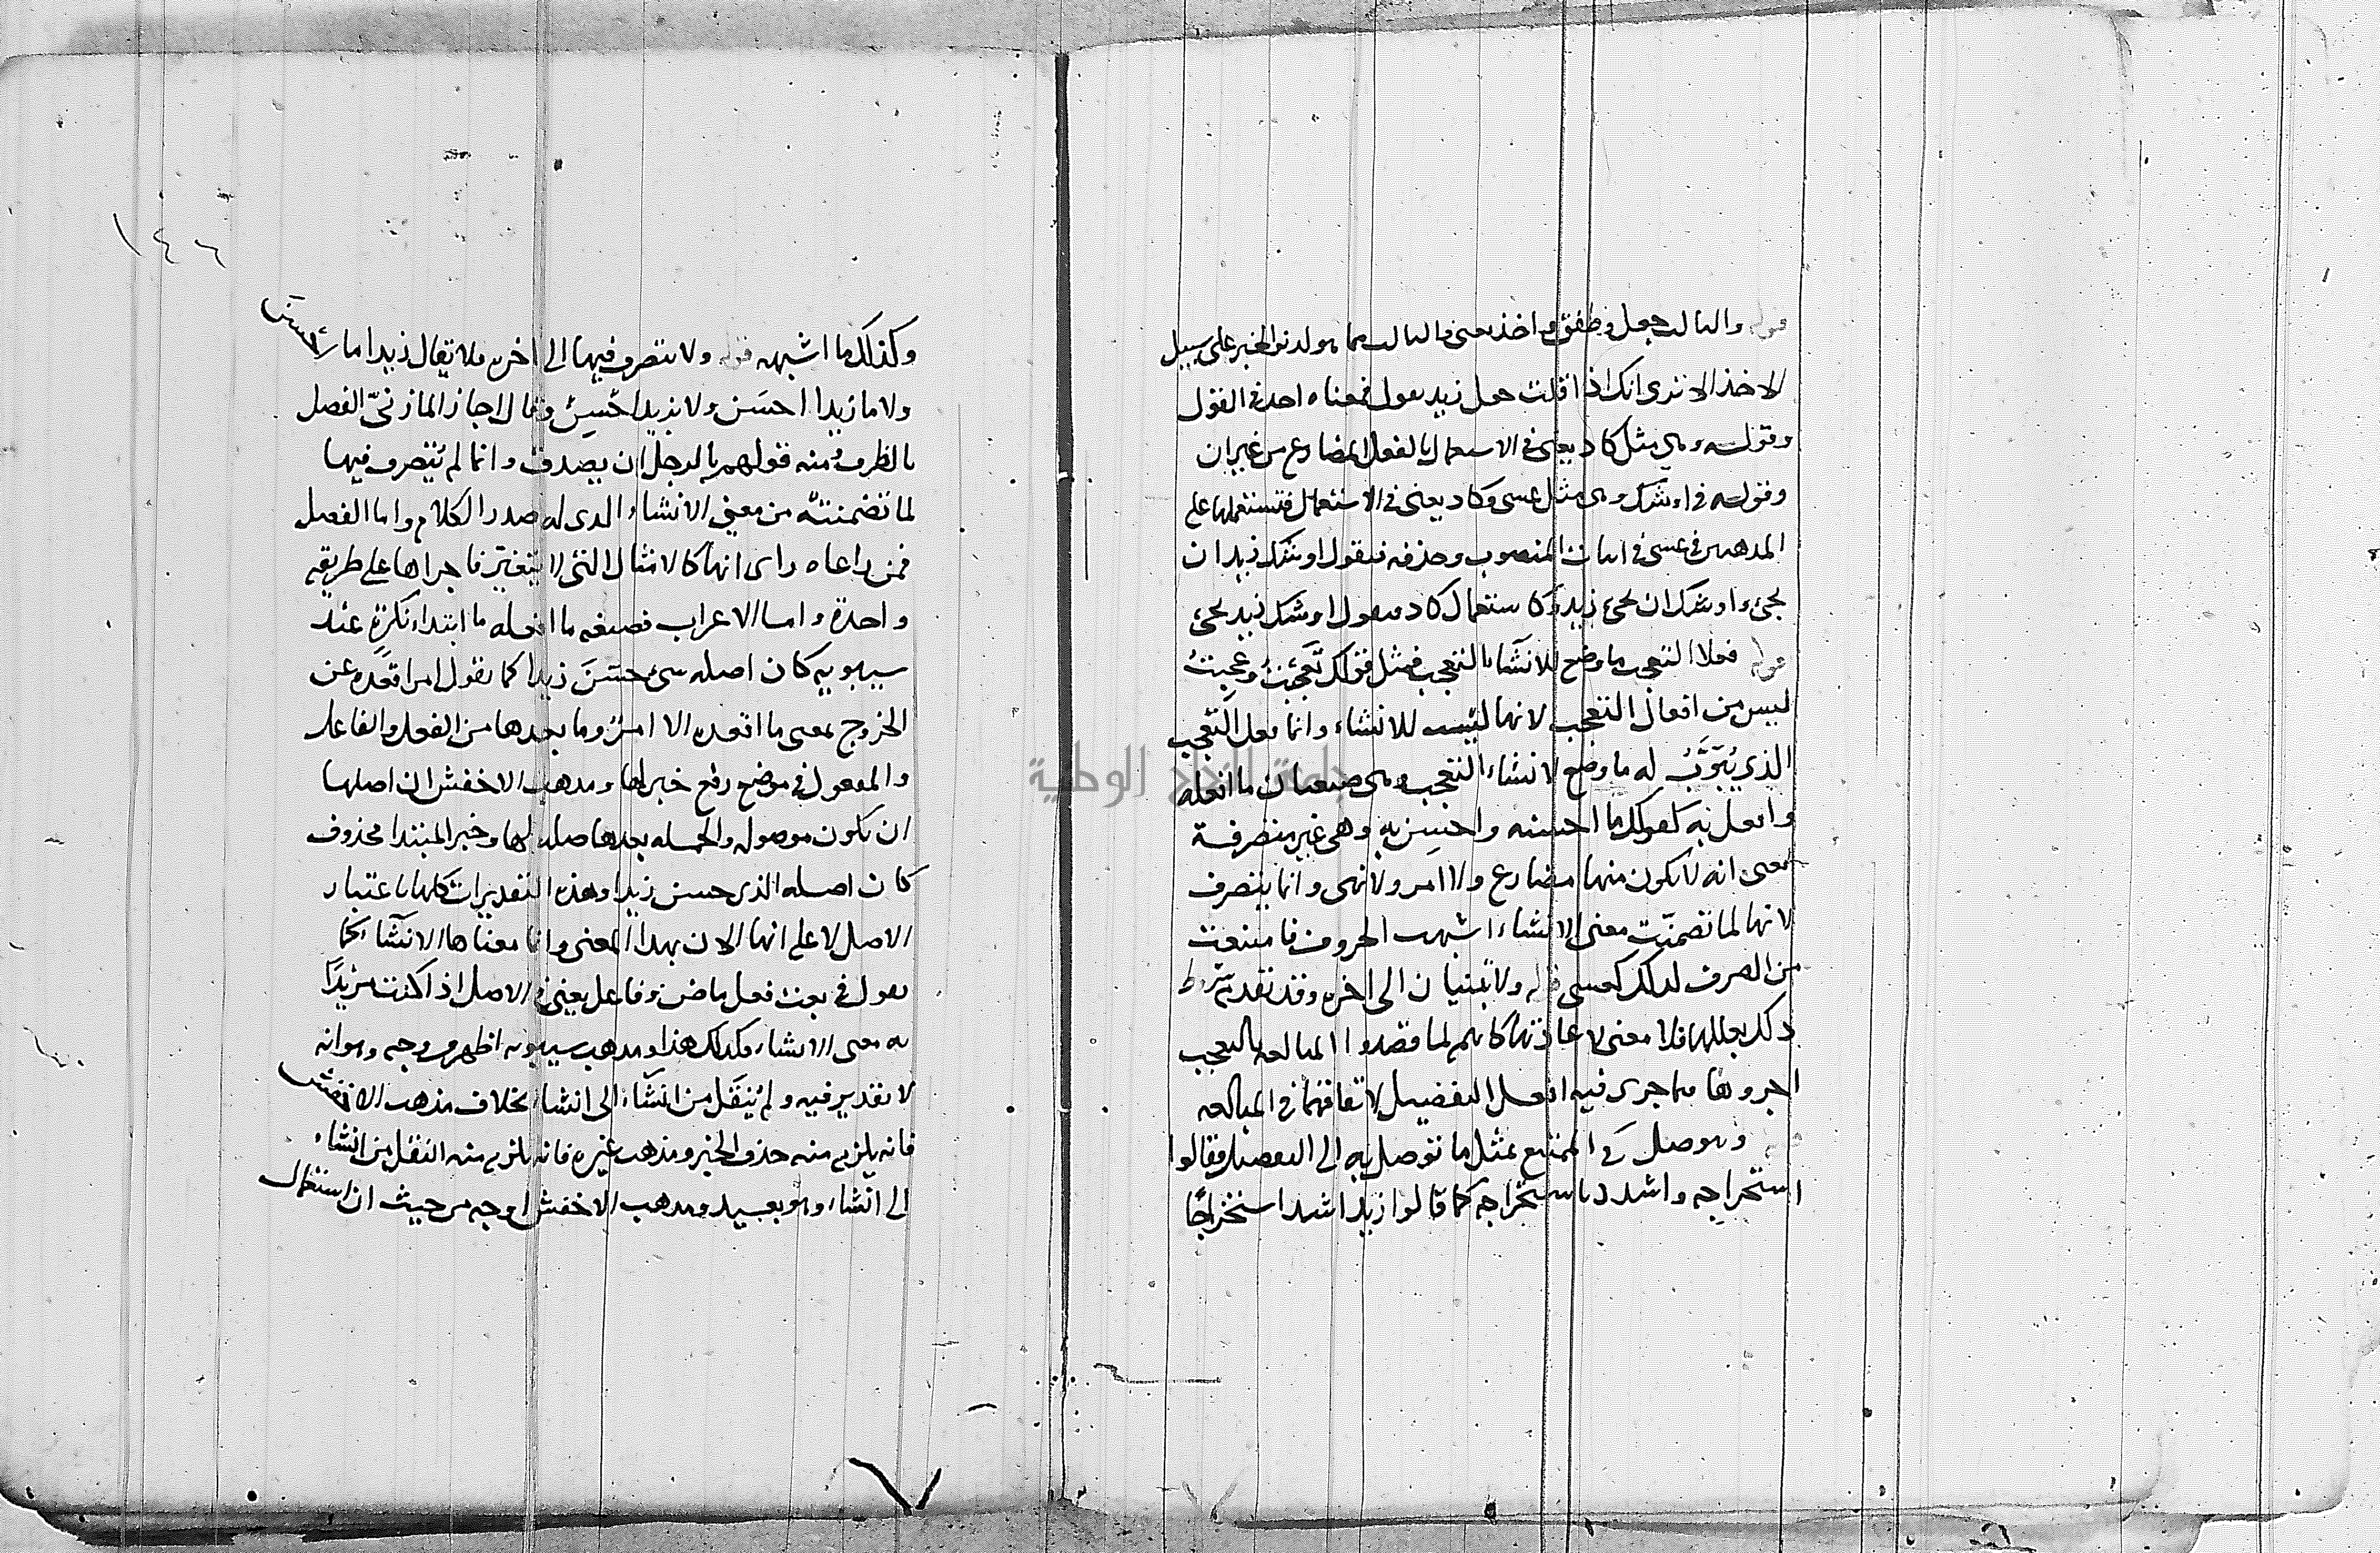 قوله والثالث جعل وطفق واخذ يعني والثالث مما هو لدنو الخبر على سبيل
الاخذ الا ترى انك اذا قلت جعل زيد يقول فمعناه اخذ في القول
وقوله وهي مثل كاد يعني في الاستعمال بالفعل المضارع من غير ان
وقوله في اوشك وهي مثل عسى وكاد يعني في الاستعمال فتستعملها على
المذهبين في عسى في اثبات المنصوب وحذفه فتقول اوشك زيد ان
يجيء واوشك ان يجيء زيد وكاستعمال كاد فتقول اوشك زيد يجيء
قوله فعلا التعجب ما وضع لانشاء التعجب فمثل قولك تعجبت وعجبت
ليس من افعال التعجب لانها ليست للانشاء وانما فعل التعجب
الذي يبوب له ما وضع لانشاء التعجب وهي صيغتان ما افعله
وافعل به كقولك ما احسنه واحسن به وهي غير متصرفة
بمعنى انه لا يكون منها مضارع ولا امر ولا نهي وانما يتصرف
لانها لما تضمنت معنى الانشاء اشبهت الحروف فامتنعت
من الصرف لذلك كعسى قوله ولا يبنيان الى اخره وقد تقدم شرط
ذلك بعللها فلا معنى لاعادتها كانهم لما قصدوا المبالغة بالتعجب
اجروها ما جرى فيه افعل التفضيل لاتفاقهما في المبالغة
قوله ويتوصل في الممتنع بمثل ما توصل به الى التفضيل فقالوا
استخراجه واشدد باستخراجه كما قالوا زيد اشد استخراجًا
١٤٦
وكذلك ما اشبهه قوله ولا يتصرف فيها الى اخره فلا يقال زيدا ما احسن
ولا ما زيدا احسن ولا بزيد احسن وقال اجاز المازني الفصل
بالظرف ومنه قولهم بالرجل ان يصدق وانما لم يتصرف فيها
لما تضمنته من معنى الانشاء الذي له صدر الكلام واما الفصل
فمن راعاه راى انها كالامثال التي لا تتغير فاجراها على طريقة
واحدة واما الاعراب فصيغه ما افعله ما ابتداء نكرة عند
سيبويه كان اصله شيء حسن زيدا كما تقول امر اقعده عن
الخروج بمعنى ما اقعده الا امر وما بعدها من الفعل والفاعل
والمفعول في موضع رفع خبر لها ومذهب الاخفش ان اصلها
ان تكون موصولة والجملة بعدها صلة لها وخبر المبتدا محذوف
كان اصله الذي حسن زيدا وهذه التقديرات كلها باعتبار
الاصل لا على انها الان بهذا المعنى وانما معناها الانشاء كما
تقول في بعت فعل ماض وفاعل يعني في الاصل اذا كنت مريدًا
به معنى الانشاء فكذلك هذا ومذهب سيبويه اظهر من وجه وهو انه
لا تقدير فيه ولم ينتقل من انشاء الى انشاء بخلاف مذهب الاخفش
فانه يلزم منه حذف الخبر ومذهب غيره فانه يلزم منه النقل من انشاء
الى انشاء وهو بعيد ومذهب الاخفش اوجه من حيث ان استعمال
جامعة النجاح الوطنية